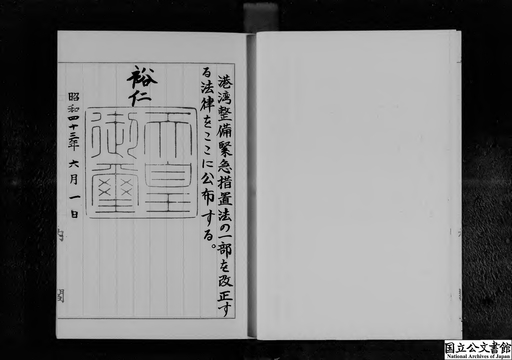 港湾整備緊急措置法の一部を改正す
る法律をここに公布する。
裕仁
天皇
御璽
昭和四十三年六月一日
国立公文書館
National Archives of Japan